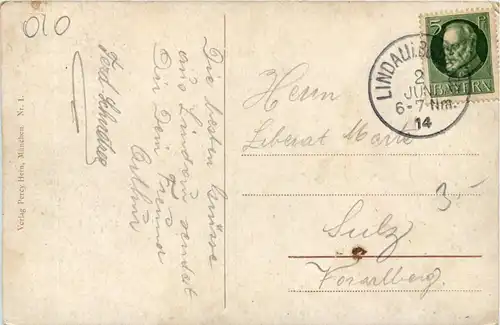 010
Die besten Grüsse
aus Lindau sendet
Dir Dein Freund
Arthur
Verlag Percy Hein, München Nr. 1.
LINDAU i. B.
2
JUN
6-7 Nm.
14
5 Pf
BAYERN
Herrn
Liberat Marte
3-
Sulz
Vorarlberg.